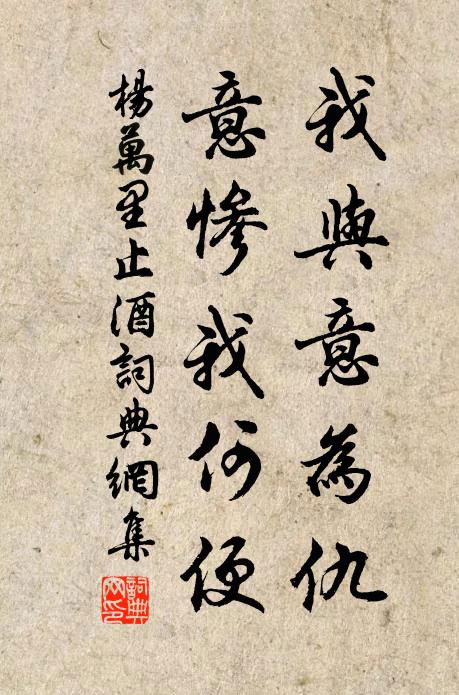 我與意為仇
意慘我何便
楊萬里止酒詞典網集
詞典网印